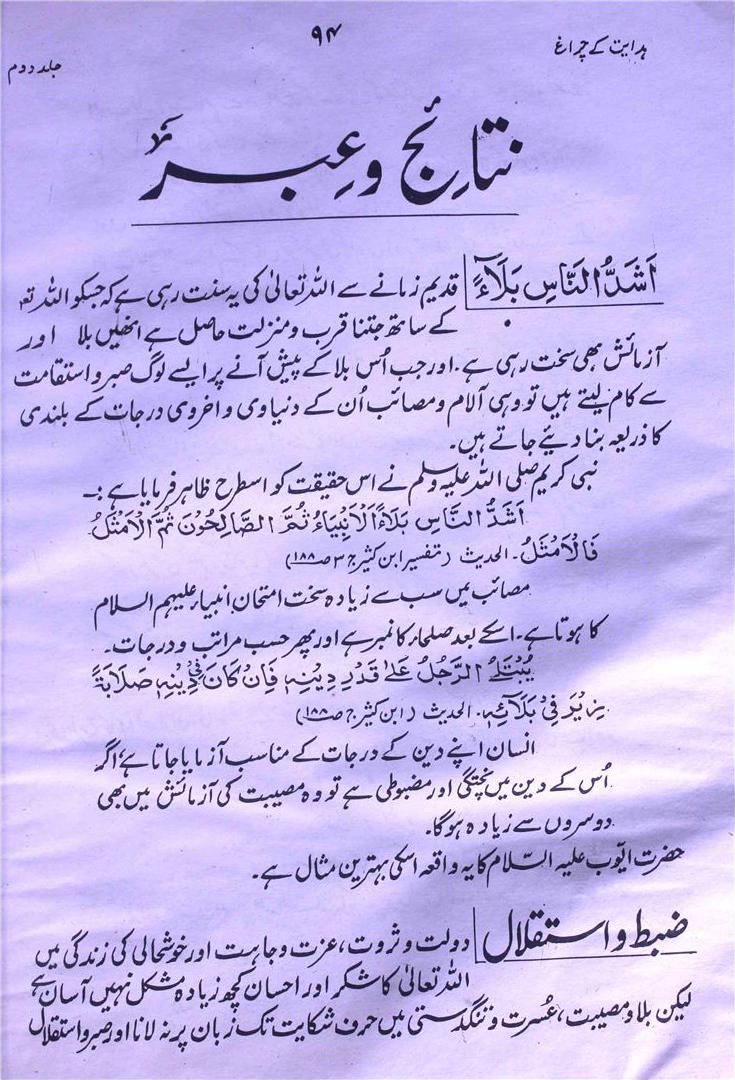 ہدایت کے چراغ
۹۴
جلد دوم
نتائج و عِبر
اَشَدُّ النَّاسِ بَلَاءً
قدیم زمانے سے اللہ تعالیٰ کی یہ سنت رہی ہے کہ جسکو اللہ تعہ
کے ساتھ جتنا قرب و منزلت حاصل ہے انھیں بلا اور
آزمائش بھی سخت رہی ہے۔ اور جب اُس بلا کے پیش آنے پر ایسے لوگ صبر و استقامت
سے کام لیتے ہیں تو وہی آلام و مصائب اُن کے دنیاوی و اخروی درجات کے بلندی
کا ذریعہ بنا دیئے جاتے ہیں۔
نبی کریم صلی اللہ علیہ وسلم نے اس حقیقت کو اسطرح ظاہر فرمایا ہے :۔
اَشَدُّ النَّاسِ بَلَاءً اَلْاَنْبِيَاءُ ثُمَّ الصَّالِحُوْنَ ثُمَّ الْاَمْثَلُ
فَالْاَمْثَلُ۔ الحدیث (تفسیر ابن کثیر ج۳ ص۱۸۸)
مصائب میں سب سے زیادہ سخت امتحان انبیاء علیہم السلام
کا ہوتا ہے۔ اسکے بعد صلحاء کا نمبر ہے اور پھر حسب مراتب و درجات۔
يُبْتَلَى الرَّجُلُ عَلٰى قَدْرِ دِيْنِهٖ فَاِنْ كَانَ فِيْ دِيْنِهٖ صَلَابَةً
زِيْدَ فِيْ بَلَائِهٖ۔ الحدیث (ابن کثیر ج ص۱۸۸)
انسان اپنے دین کے درجات کے مناسب آزمایا جاتا ہے اگر
اُس کے دین میں پختگی اور مضبوطی ہے تو وہ مصیبت کی آزمائش میں بھی
دوسروں سے زیادہ ہوگا۔
حضرت ایّوب علیہ السّلام کا یہ واقعہ اسکی بہترین مثال ہے۔
ضبط و استقلال
دولت و ثروت، عزت و جاہت اور خوشحالی کی زندگی میں
اللہ تعالیٰ کا شکر اور احسان کچھ زیادہ مشکل نہیں آسان ہے
لیکن بلا و مصیبت، عُسرت و تنگدستی میں حرف شکایت تک زبان پر نہ لانا اور صبر و استقلال